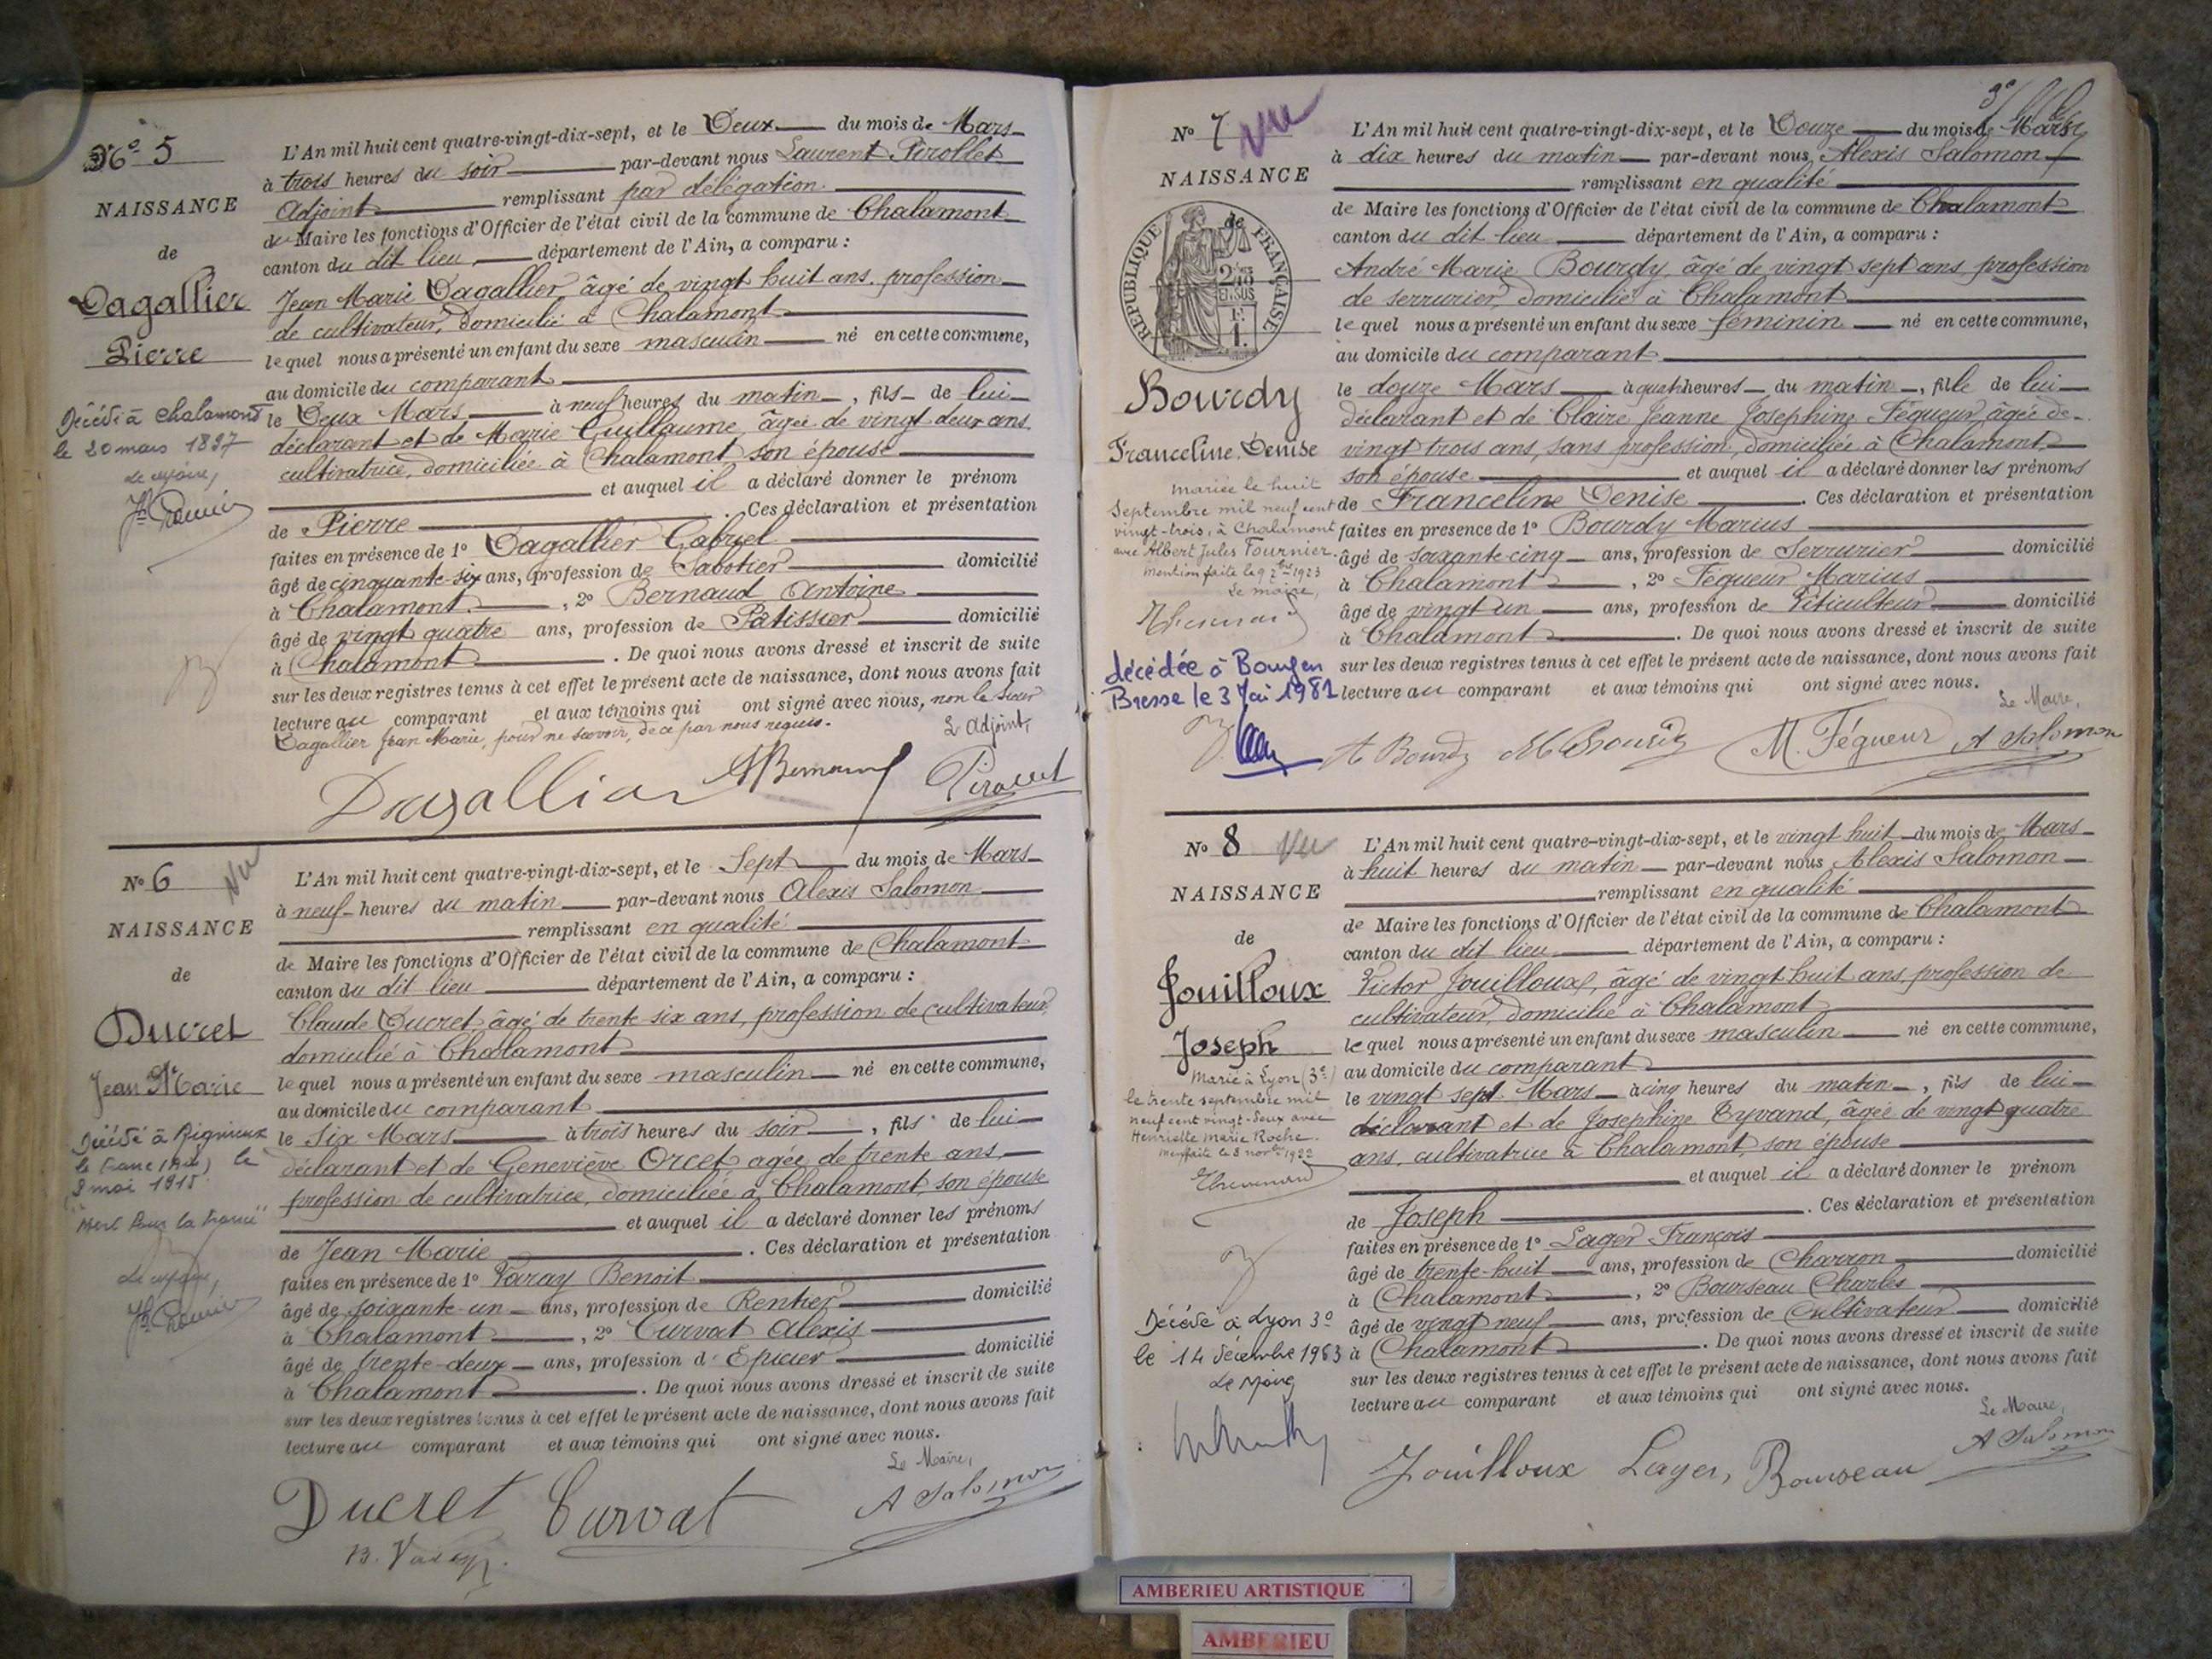 No 5
NAISSANCE
de
Dagallier
Pierre
Décédé à Chalamont
le 20 mars 1897
Le Maire,
L'An mil huit cent quatre-vingt-dix-sept, et le Deux du mois de Mars
à trois heures du soir par-devant nous Laurent Pirollet
Adjoint remplissant par délégation
du Maire les fonctions d'Officier de l'état civil de la commune de Chalamont
canton du dit lieu département de l'Ain, a comparu :
Jean Marie Dagallier âgé de vingt huit ans, profession
de cultivateur, domicilié à Chalamont
lequel nous a présenté un enfant du sexe masculin né en cette commune,
au domicile du comparant
le Deux Mars à neuf heures du matin, fils de lui
déclarant et de Marie Guillaume, âgée de vingt deux ans,
cultivatrice, domiciliée à Chalamont son épouse
et auquel il a déclaré donner le prénom
de Pierre . Ces déclaration et présentation
faites en présence de 1° Dagallier Gabriel
âgé de cinquante-six ans, profession de Sabotier domicilié
à Chalamont , 2° Bernaud Antoine
âgé de vingt quatre ans, profession de Pâtissier domicilié
à Chalamont . De quoi nous avons dressé et inscrit de suite
sur les deux registres tenus à cet effet le présent acte de naissance, dont nous avons fait
lecture au comparant et aux témoins qui ont signé avec nous, non le sieur
Dagallier Jean Marie, pour ne savoir, de ce par nous requis.
L'Adjoint,
Dagallier ABernaud Pirollet
No 6
Vu
NAISSANCE
de
Ducret
Jean Marie
Décédé à Rignieux
le Franc (Ain) le
3 mai 1915
"Mort Pour la France"
Le Maire,
L'An mil huit cent quatre-vingt-dix-sept, et le Sept du mois de Mars
à neuf heures du matin par-devant nous Alexis Salomon
remplissant en qualité
de Maire les fonctions d'Officier de l'état civil de la commune de Chalamont
canton du dit lieu département de l'Ain, a comparu :
Claude Ducret, âgé de trente six ans, profession de cultivateur,
domicilié à Chalamont
lequel nous a présenté un enfant du sexe masculin né en cette commune,
au domicile du comparant
le Six Mars à trois heures du soir , fils de lui
déclarant et de Geneviève Orcet, agée de trente ans,
profession de cultivatrice, domiciliée à Chalamont, son épouse
et auquel il a déclaré donner les prénoms
de Jean Marie . Ces déclaration et présentation
faites en présence de 1° Varay Benoit
âgé de soixante-un ans, profession de Rentier domicilié
à Chalamont , 2° Curvat Alexis
âgé de trente-deux ans, profession d'Epicier domicilié
à Chalamont . De quoi nous avons dressé et inscrit de suite
sur les deux registres tenus à cet effet le présent acte de naissance, dont nous avons fait
lecture au comparant et aux témoins qui ont signé avec nous.
Le Maire,
Ducret Curvat A Salomon
B. Varay
No 7 Vu
NAISSANCE
RÉPUBLIQUE FRANÇAISE
de
2/10
EN SUS
Bourdy
Franceline Denise
Mariée le huit
Septembre mil neuf cent
vingt-trois, à Chalamont
avec Albert Jules Fournier.
Mention faite le 9 7bre 1923
Le maire,
décédée à Bourg en
Bresse le 3 Mai 1981
L'An mil huit cent quatre-vingt-dix-sept, et le Douze du mois de Mars
à dix heures du matin par-devant nous Alexis Salomon
remplissant en qualité
de Maire les fonctions d'Officier de l'état civil de la commune de Chalamont
canton du dit lieu département de l'Ain, a comparu :
André Marie Bourdy, âgé de vingt sept ans, profession
de serrurier, domicilié à Chalamont
lequel nous a présenté un enfant du sexe féminin né en cette commune,
au domicile du comparant
le douze Mars à quatre heures du matin , fille de lui
déclarant et de Claire Jeanne Josephine Féqueur, âgée de
vingt trois ans, sans profession, domiciliée à Chalamont,
son épouse et auquel il a déclaré donner les prénoms
de Franceline Denise . Ces déclaration et présentation
faites en présence de 1° Bourdy Marius
âgé de soixante-cinq ans, profession de Serrurier domicilié
à Chalamont , 2° Féqueur Marius
âgé de vingt un ans, profession de Viticulteur domicilié
à Chalamont . De quoi nous avons dressé et inscrit de suite
sur les deux registres tenus à cet effet le présent acte de naissance, dont nous avons fait
lecture au comparant et aux témoins qui ont signé avec nous.
Le Maire,
A Bourdy M Bourdy M. Féqueur A Salomon
No 8 Vu
NAISSANCE
de
Jouilloux
Joseph
Marié à Lyon (3e)
le trente septembre mil
neuf cent vingt-deux avec
Henriette Marie Roche.
Men. faite le 8 novbre 1922
Thevenard
Décédé à Lyon 3e
le 14 décembre 1963
Le Maire
L'An mil huit cent quatre-vingt-dix-sept, et le vingt huit du mois de Mars
à huit heures du matin par-devant nous Alexis Salomon
remplissant en qualité
de Maire les fonctions d'Officier de l'état civil de la commune de Chalamont
canton du dit lieu département de l'Ain, a comparu :
Victor Jouilloux, âgé de vingt huit ans, profession de
cultivateur, domicilié à Chalamont
lequel nous a présenté un enfant du sexe masculin né en cette commune,
au domicile du comparant
le vingt sept Mars à cinq heures du matin , fils de lui
déclarant et de Josephine Eyvand, âgée de vingt quatre
ans, cultivatrice à Chalamont, son épouse
et auquel il a déclaré donner le prénom
de Joseph . Ces déclaration et présentation
faites en présence de 1° Lager François
âgé de trente-huit ans, profession de Charron domicilié
à Chalamont , 2° Bourseau Charles
âgé de vingt neuf ans, profession de Cultivateur domicilié
à Chalamont . De quoi nous avons dressé et inscrit de suite
sur les deux registres tenus à cet effet le présent acte de naissance, dont nous avons fait
lecture au comparant et aux témoins qui ont signé avec nous.
Le Maire,
Jouilloux Lager, Bourseau A Salomon
AMBERIEU ARTISTIQUE
AMBERIEU